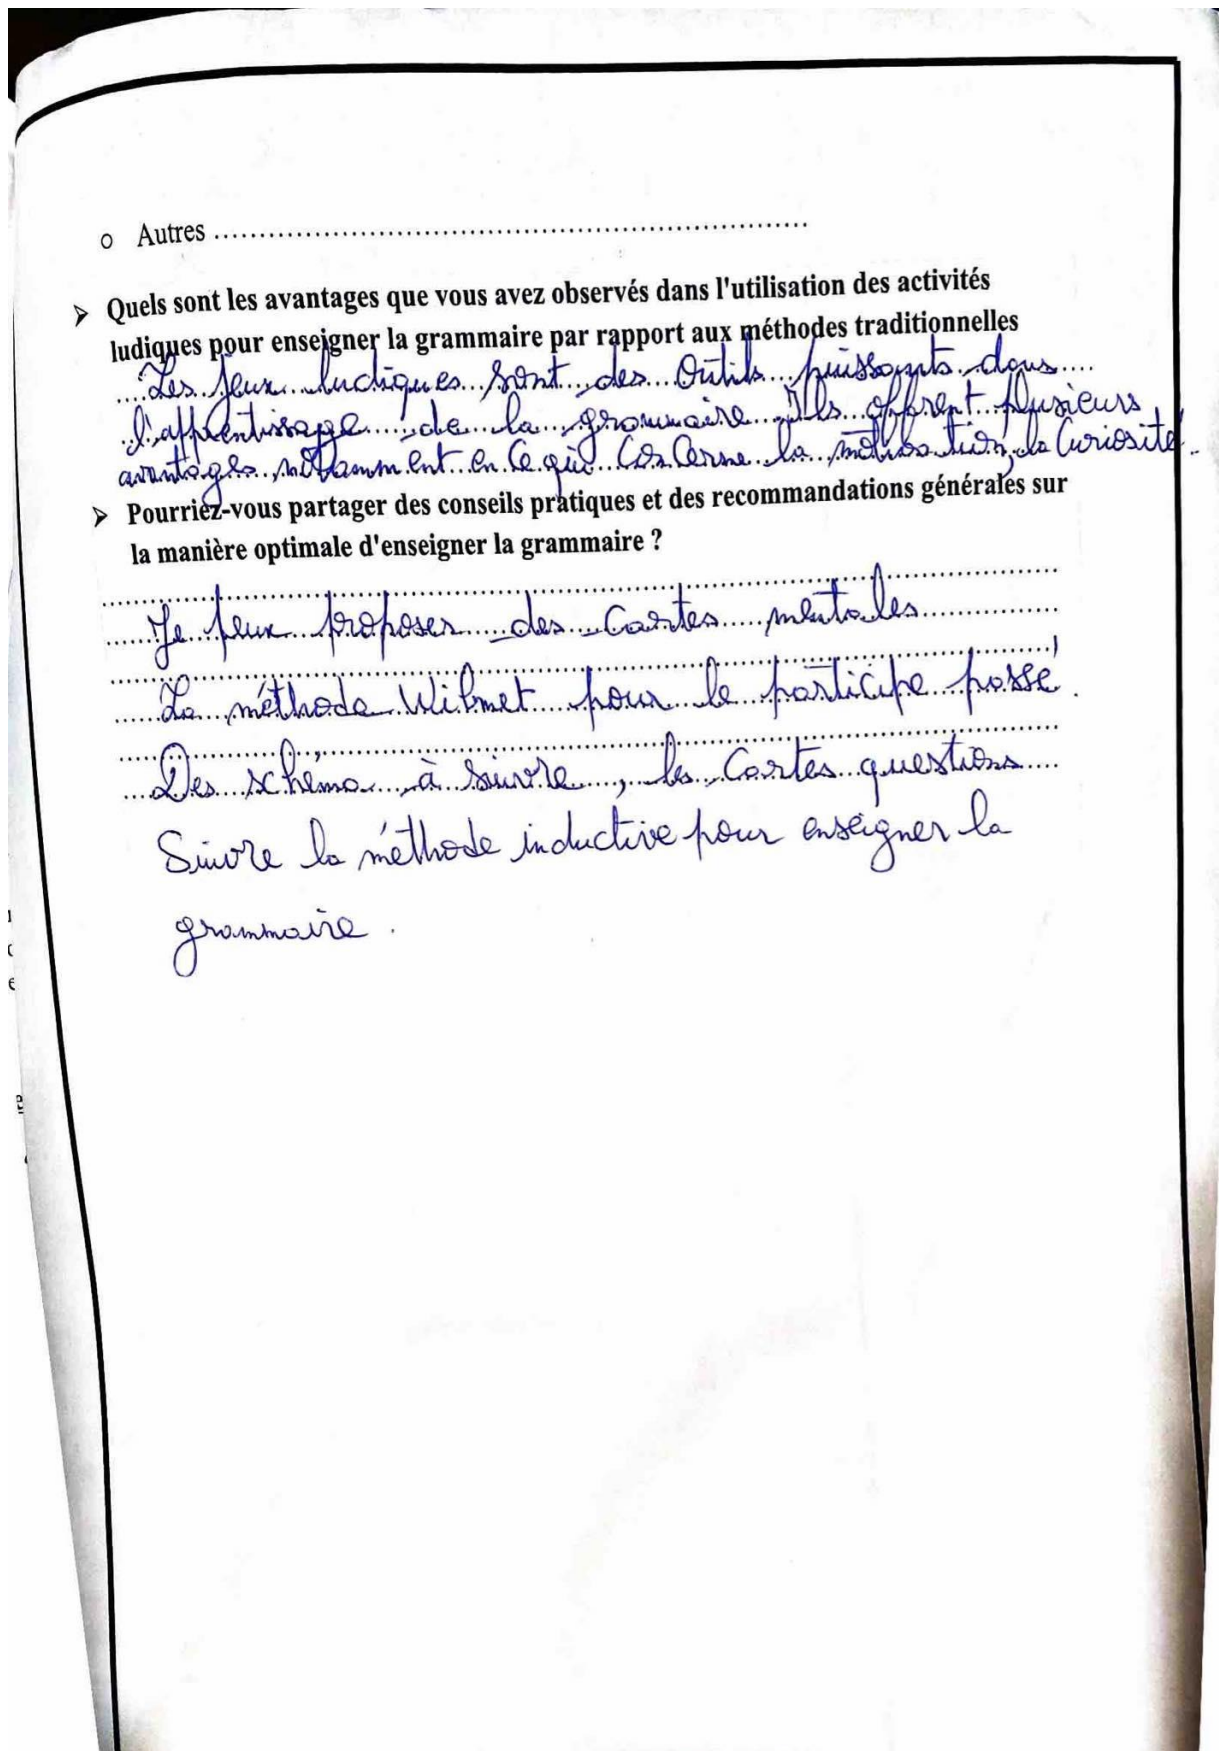 o Autres ........................................................................
➢ Quels sont les avantages que vous avez observés dans l'utilisation des activités
ludiques pour enseigner la grammaire par rapport aux méthodes traditionnelles
Les jeux ludiques sont des outils puissants dans
l'apprentissage de la grammaire. Ils offrent plusieurs
avantages notamment en ce qui concerne la motivation, la Curiosité.
➢ Pourriez-vous partager des conseils pratiques et des recommandations générales sur
la manière optimale d'enseigner la grammaire ?
Je peux proposer des Cartes mentales
La méthode Wilmet pour le participe passé.
Des schéma à suivre, les Cartes questions
Suivre la méthode inductive pour enseigner la
grammaire.